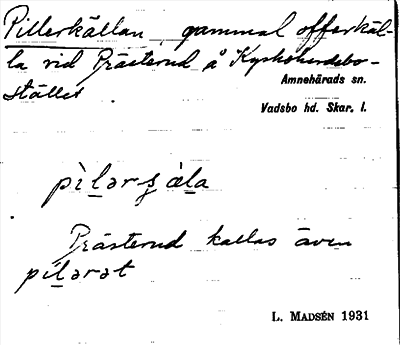 Pillerkällan, gammal offerkäl-
la vid Prästerud å Kyrkoherdebo-
Amnehärads sn.
stället
Vadsbo hd. Skar. l.
pìḷərʂ ä̀ḷa
Prästerud kallas även
píḷərət
L. MADSÉN 1931